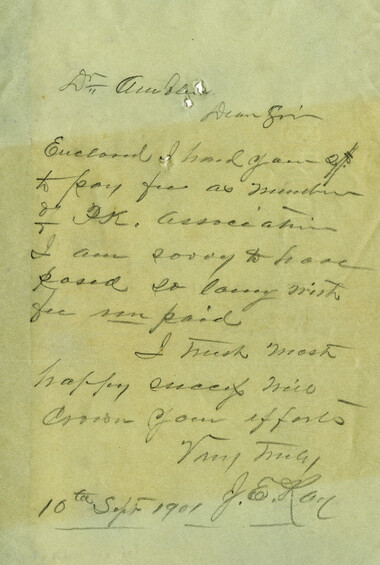 Dr Ambler
Dear Sir
Enclosed I hand you
to pay fee as member
of F.K. Association
I am sorry to have
posed so long with
fee un paid
I trust most
happy success will
crown your efforts
Very Truly
10th Sept 1901 J. E. Ray